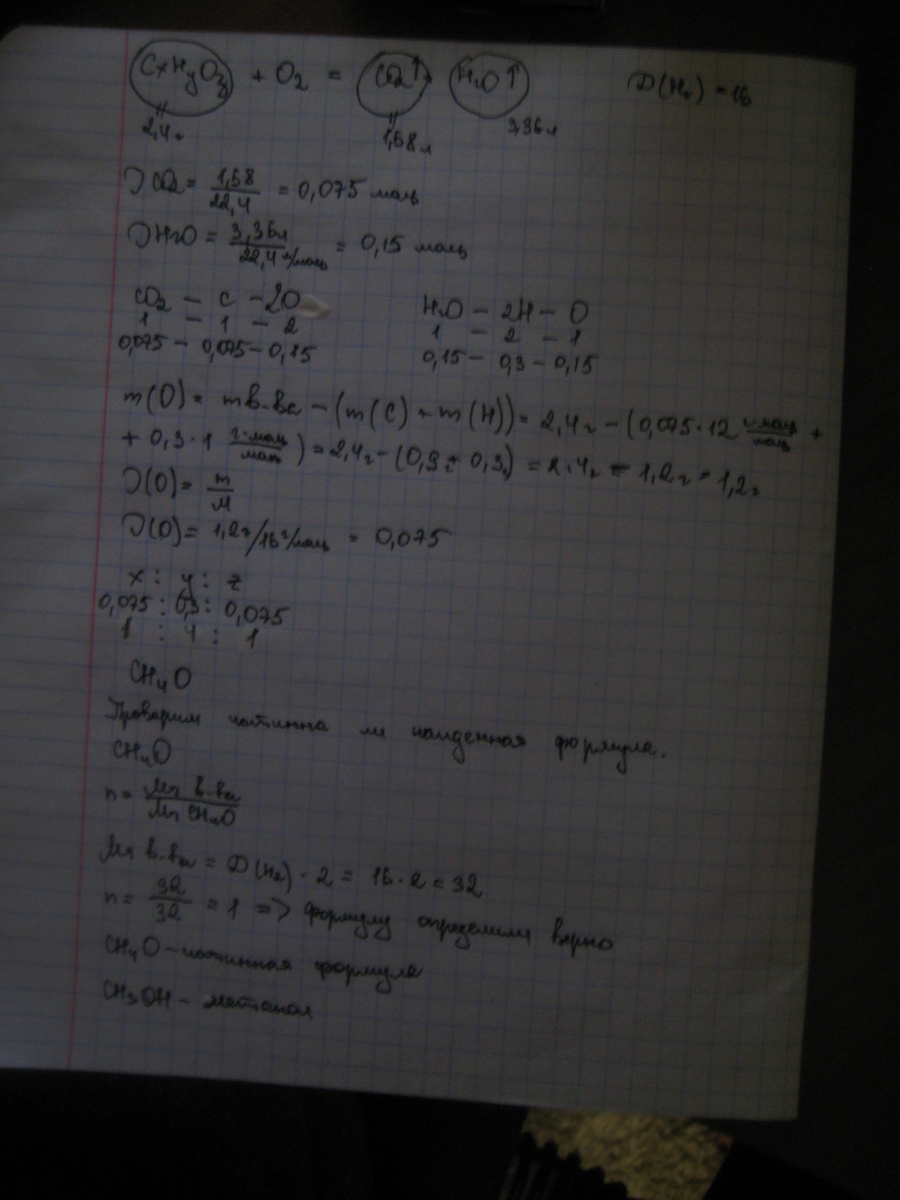 CxHyOz + O2 = CO2↑ + H2O↑ D(H2) = 16
2,4г 1,68л 3,36л
νCO2 = 1,68/22,4 = 0,075 моль
νH2O = 3,36л/22,4 л/моль = 0,15 моль
CO2 – C – 2O H2O – 2H – O
1 – 1 – 2 1 – 2 – 1
0,075 – 0,075 – 0,15 0,15 – 0,3 – 0,15
m(O) = mв-ва – (m(C) + m(H)) = 2,4г – (0,075·12 г·моль/моль +
+ 0,3·1 г·моль/моль) = 2,4г – (0,9г + 0,3г) = 2,4г – 1,2г = 1,2г
ν(O) = m/M
ν(O) = 1,2г/16г/моль = 0,075
x : y : z
0,075 : 0,3 : 0,075
1 : 4 : 1
CH4O
Проверим истинна ли найденная формула.
CH4O
n = Mr в-ва/Mr CH4O
Mr в-ва = D(H2) · 2 = 16·2 = 32
n = 32/32 = 1 => формулу определили верно
CH4O – истинная формула
CH3OH – метанол